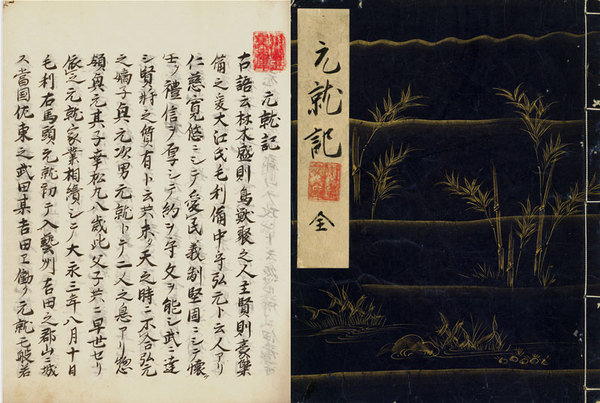 元就記
全
元就記
古語云林木盛則鳥獣聚之人主賢則豪集
備之爰大江氏毛利備中守弘元ト云人アリ
仁慈寛悠ニシテ愛民義剛堅固ニシテ懐
士ヲ禮信ヲ厚シテ約ヲ守文ヲ能シ武ニ達
シ賢将之質有ト云共未タ天之時ニ不合弘元
之嫡子興元次男元就トテ二人之息アリ惣
領興元其子幸松丸八歳此父子共ニ早世セリ
依之元就家業相續シテ大永三年八月十日
毛利右馬頭元就初テ入藝州吉田之郡山之城
當国佐東之武田某吉田エ働ク元就